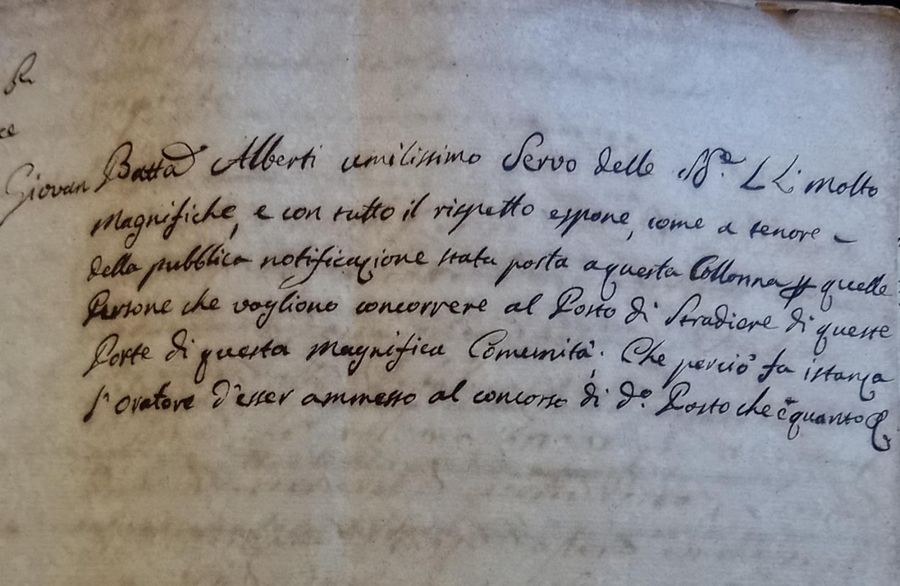 Giovan Batta Alberti umilissimo Servo delle SS.e LL: molto
Magnifiche, e con tutto il rispetto espone, come a tenore
della pubblica notificazione stata posta a questa Collonna p quelle
Persone che vogliono concorrere al Posto di Stradiere di queste
Porte di questa Magnifica Comunità. Che perciò fa istanza
l'Oratore d'esser ammesso al concorso di do. Posto che è quanto